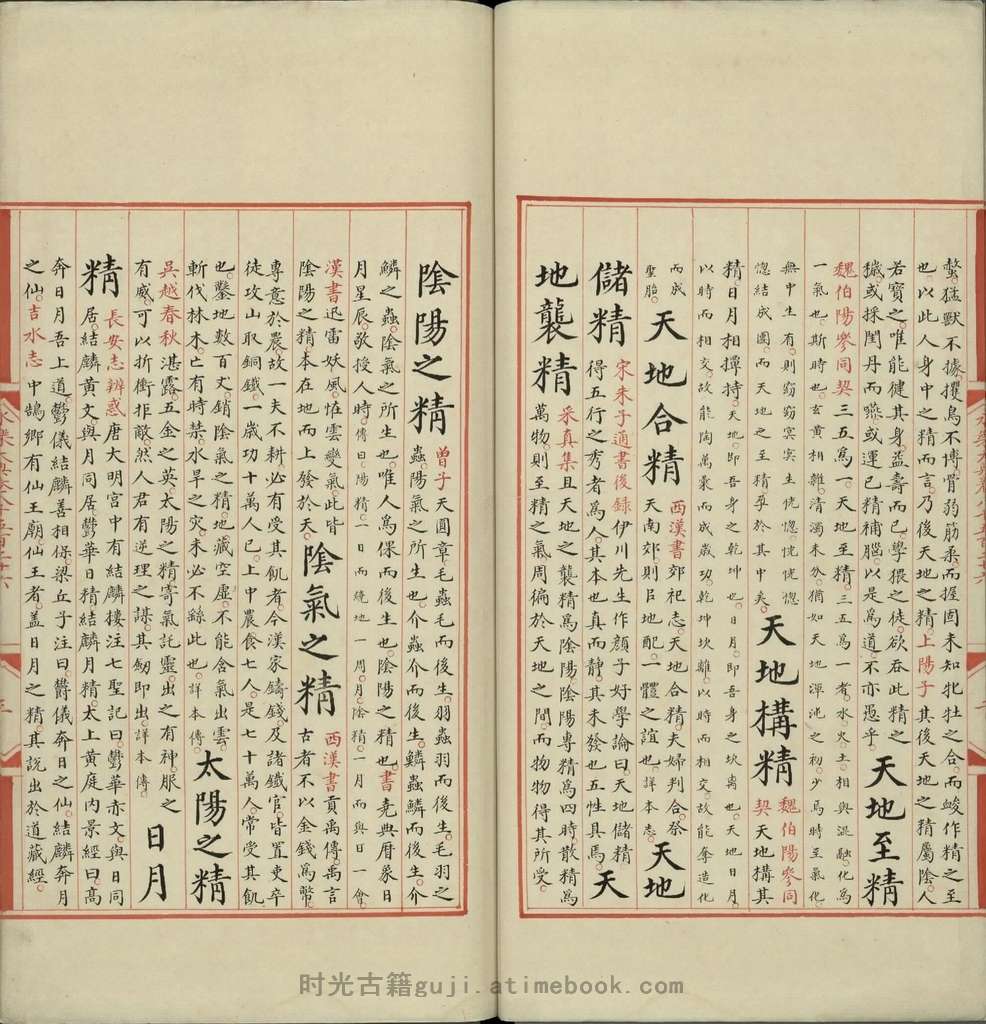 螫。猛獸不據。攫鳥不搏。骨弱筋柔。而握固。未知牝牡之合。而峻作。精之至
也。以此人身中之精而言。乃後天地之精。上陽子。其後天地之精。屬陰。人
若寶之。唯能健其身。益壽而已。學猥之徒。欲吞此精。之
穢。或採閨丹而嚥。或運已精補腦。以是為道。不亦愚乎。
天地至精
魏伯陽參同契 三五爲一。天地至精。三五爲一者。水火土相與混融。化爲
一氣也。斯時也。玄黃相雜。清濁未分。猶如天地渾沌之初。少焉時至氣化。
無中生有。則窈窈冥冥生恍惚。恍恍惚
惚結成團。而天地之至精孕於其中矣。
天地構精
魏伯陽參同
契 天地構其
精。日月相撢持。天地。即吾身之乾坤也。日月。即吾身之坎离也。天地日月。
以時而相交。故能陶萬彙而成歲功。乾坤坎離。以時而相交。故能奪造化
而成
聖胎。
天地合精
西漢書 郊祀志。天地合精。夫婦判合。祭
天南郊。則㠯地配。一體之誼也。詳本志。
天地
儲精
宋朱子通書後錄 伊川先生作顏子好學論曰。天地儲精。
得五行之秀者爲人。其本也真而靜。其未發也五性具焉。
天
地襲精
采真集 且天地之襲精爲陰陽。陰陽專精爲四時。散精爲
萬物。則至精之氣。周徧於天地之間。而物物得其所受。
陰陽之精
曾子 天圓章。毛蟲毛而後生。羽蟲羽而後生。毛羽之
蟲。陽氣之所生也。介蟲介而後生。鱗蟲鱗而後生。介
鱗之蟲。陰氣之所生也。唯人爲倮而後生也。陰陽之精也。書 堯典。曆象日
月星辰。敬授人時。傳曰。陽精。一日而繞地一周。月。陰精。一月而與日一會。
漢書 迅雷妖風。恠雲變氣。此皆
陰陽之精。本在地。而上發於天。
陰氣之精
西漢書 貢禹傳。禹言
古者不以金錢爲幣。
專意於農。故一夫不耕。必有受其飢者。今漢家鑄錢。及諸鐵官。皆置吏卒
徒。攻山取銅鐵。一歲功十萬人已上。中農食七人。是七十萬人。常受其飢
也。鑿地數百丈。銷陰氣之精。地藏空虛。不能含氣出雲。
斬伐林木。亡有時禁。水旱之灾。未必不繇此也。詳本傳。
太陽之精
吳越春秋 湛露。五金之英。太陽之精。寄氣託靈。出之有神。服之
有威。可以折衝拒敵。然人君有逆理之謀。其劒即出。詳本傳。
日月
精
長安志辨惑 唐大明宮中有結麟樓。注七聖記曰。鬱華赤文。與日同
居。結麟黃文。與月同居。鬱華日精。結麟月精。太上黃庭內景經曰。高
奔日月吾上道。鬱儀結麟善相保。梁丘子注曰。鬱儀。奔日之仙。結麟。奔月
之仙。吉水志 中鵠鄉有仙王廟。仙王者。蓋日月之精。其說出於道藏經。
时光古籍guji.atimebook.com